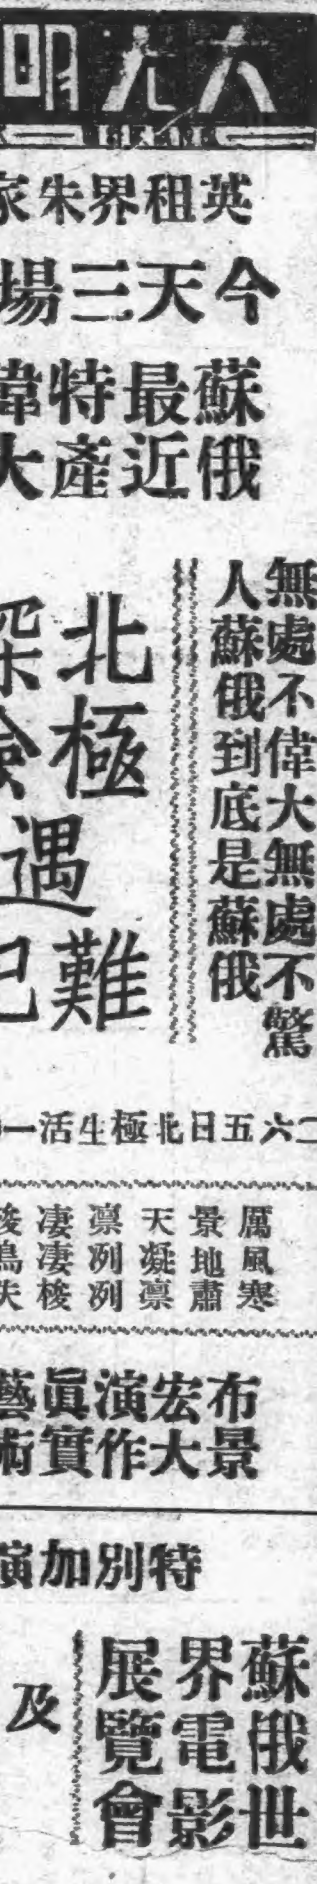 大光明
英租界朱家
今天三場
蘇俄
最近
特產
偉大
無處不偉大無處不驚
人蘇俄到底是蘇俄
北極
探險
遇
難記
二六五日北極生活一
厲風寒
景地肅
天凝凛
凛冽冽
凄凄梭
布景
宏大
演作
真實
藝術
特別加演
蘇俄世
界電影
展覽會
及